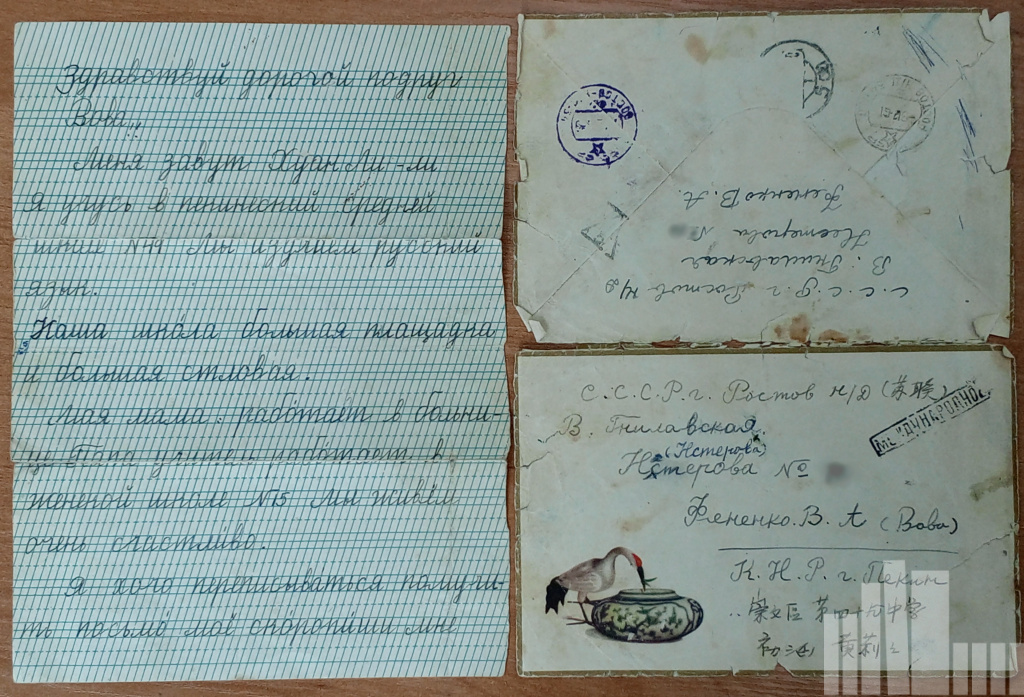 Здравствуй дорогой подруг
Вова,,
Меня завут Хуан-Ли-ли
Я учусь в пекинский средней
школе №19 Мы изучаем русский
язык.
Наша школа большая площадка
и большая стловая.
Моя мама работает в больни-
це Папа учитель работает в
женской школе №15 Мы живём
очень счастливо.
Я хочо переписываться получи-
ть письмо моё скоропиши мне
С.С.С.Р. г. Ростов н/Д
В. Гнилавская
Нестерова №
Фененко В. А.
С.С.С.Р. г. Ростов н/Д (苏联)
В. Гнилавская.
(Нстерова)
Нстерова №
Фененко. В. А (Вова)
К. Н. Р. г. Пекин
崇文区 第四十九中学
黄莉